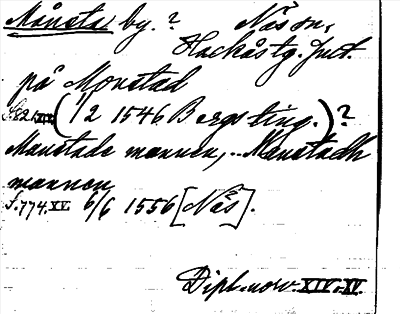 Månsta by. ? Näs sn,
Hackås tg. Jmt.
på Monstad
S.821.XIV (1/2 1546 Bergs ting.)?
Manstade mannen, .. Manstadh
mannen
S.774.XV 6/6 1556 [Näs].
Dipl. norv. XIV. XV.